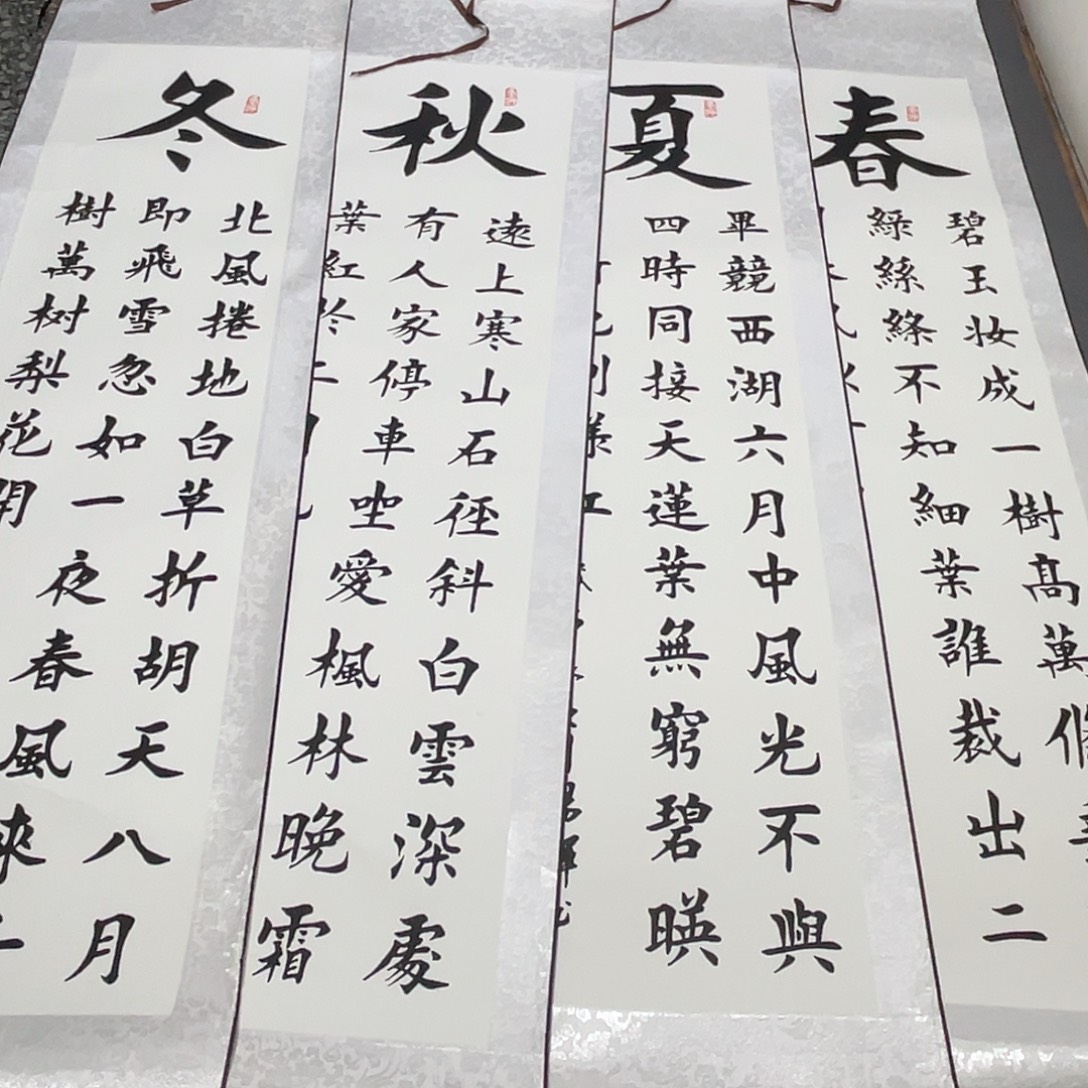 春
碧玉妆成一樹髙萬
緑絲絛不知細葉誰裁出二
夏
畢競西湖六月中風光不與
四時同接天蓮葉無窮碧暎
秋
逺上寒山石徑科白雲深處
有人家停車坐愛楓林晚霜
葉紅於
冬
北風捲地白草折胡天八月
即飛雪忽如一夜春風
樹萬树梨花開